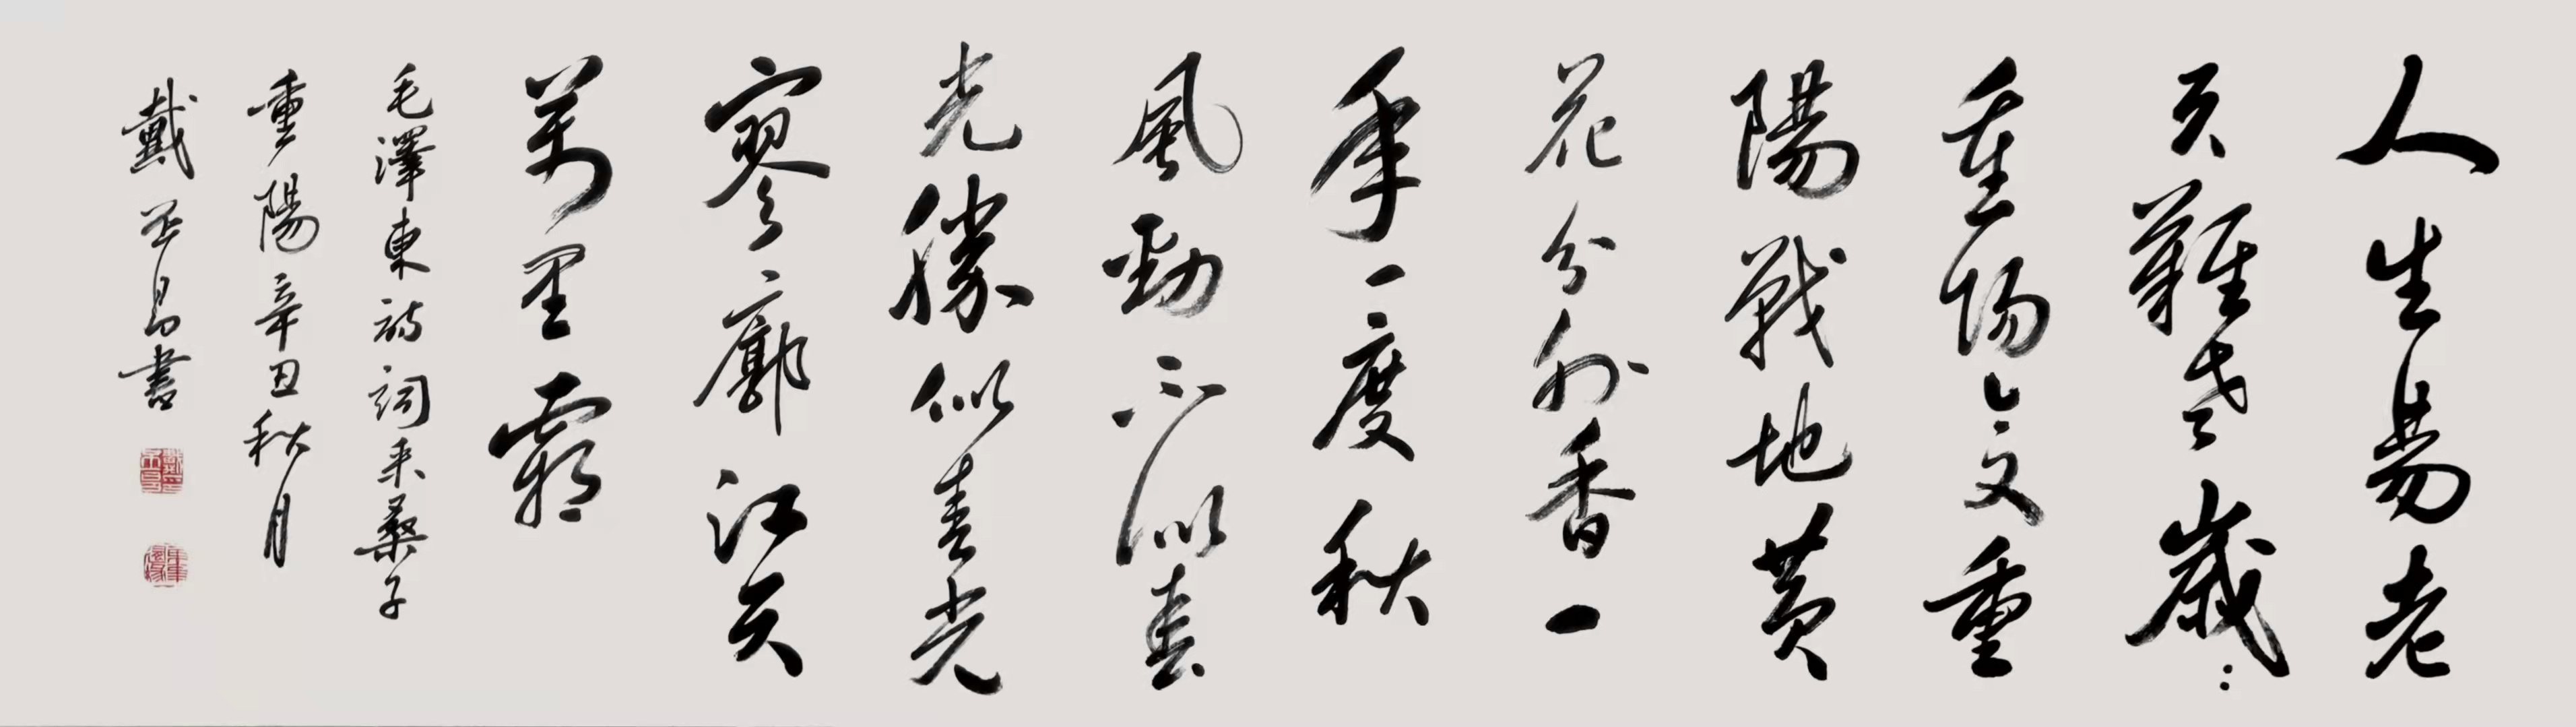 人生易老
天難老歲〻
重陽今又重
陽戰地黃
花分外香一
年一度秋
風勁不似春
光勝似春光
寥廓江天
萬里霜
毛澤東詩詞采桑子
重陽辛丑秋月
戴書